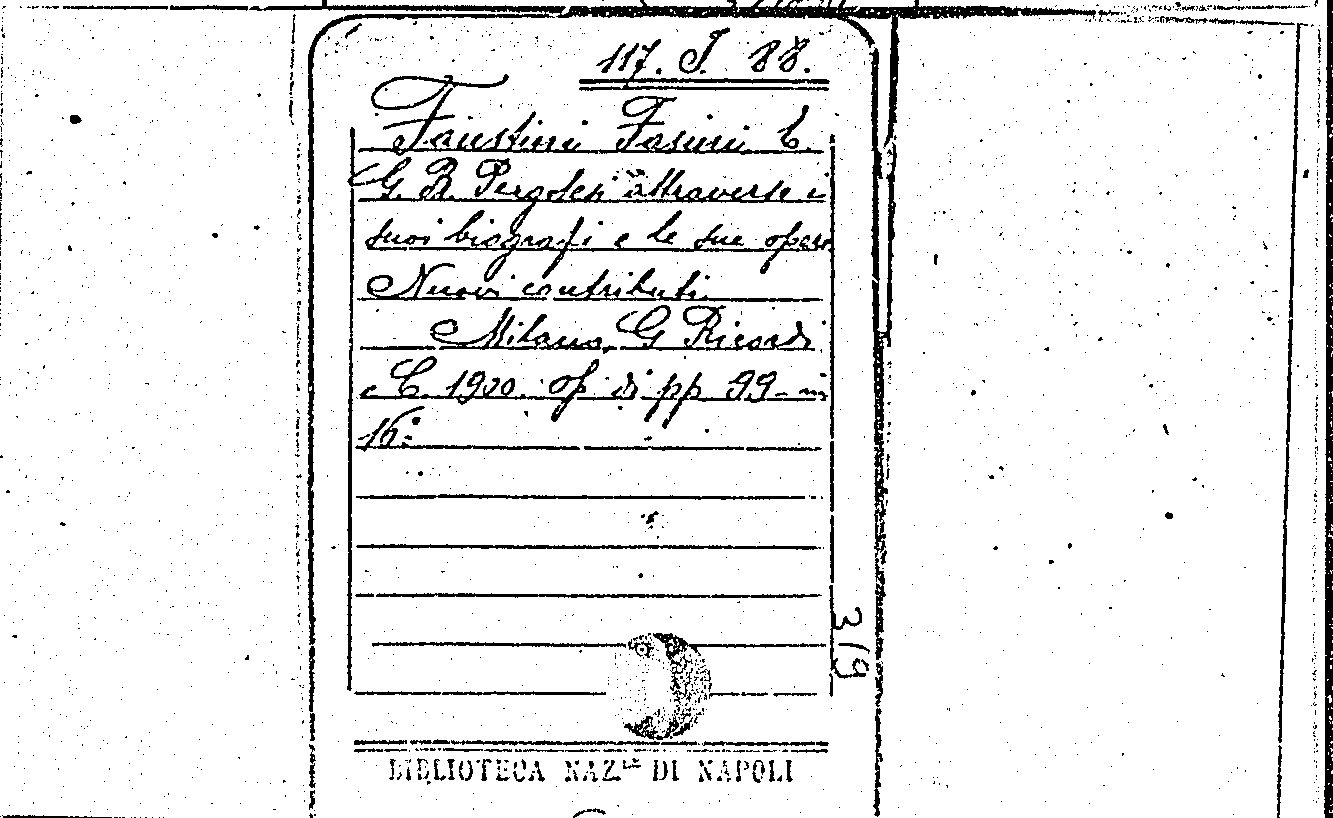 117. J. 88.
Faustini Fasini E.
G. B. Pergolesi attraverso i
suoi biografi e le sue opere
Nuovi contributi.
Milano, G Ricordi
e C. 1900. op di pp 99 - in
16:
319
BIBLIOTECA NAZ.LE DI NAPOLI